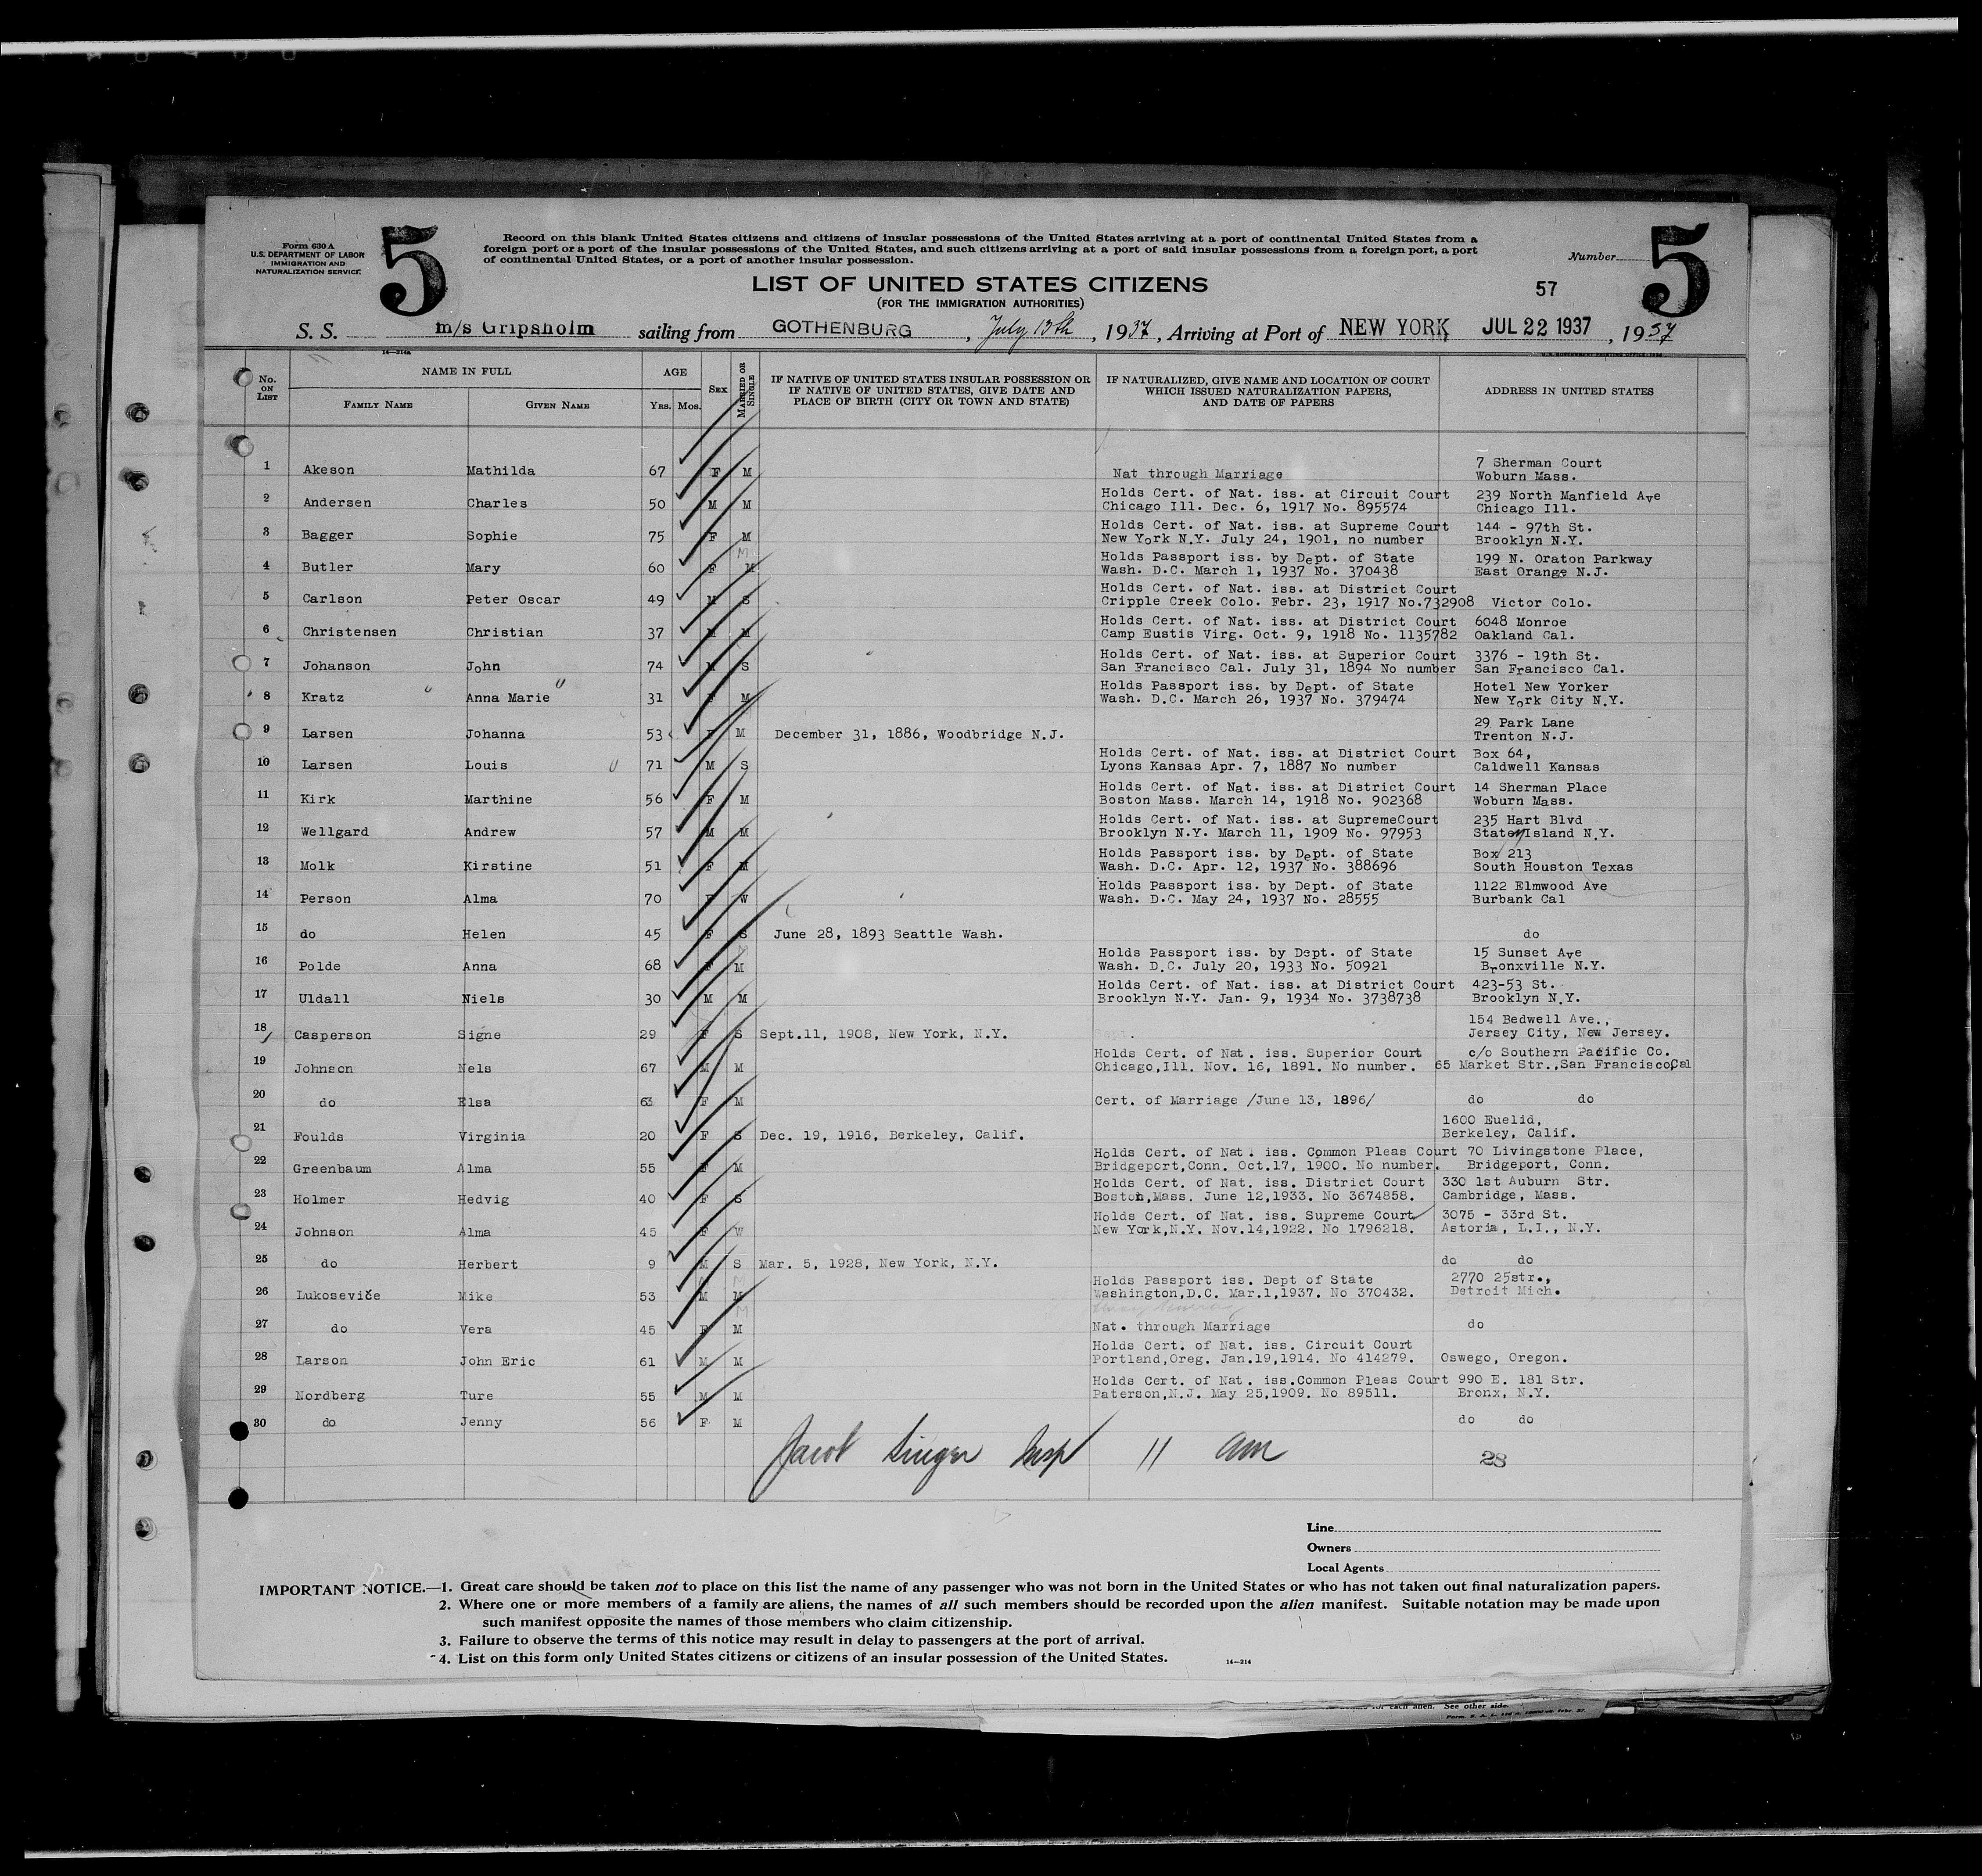 Form 630 A
U.S. DEPARTMENT OF LABOR
IMMIGRATION AND
NATURALIZATION SERVICE
5
Record on this blank United States citizens and citizens of insular possessions of the United States arriving at a port of continental United States from a
foreign port or a port of the insular possessions of the United States, and such citizens arriving at a port of said insular possessions from a foreign port, a port
of continental United States, or a port of another insular possession.
Number 5
LIST OF UNITED STATES CITIZENS
(FOR THE IMMIGRATION AUTHORITIES)
57
S. S. m/s Gripsholm sailing from GOTHENBURG, July 13th, 1937, Arriving at Port of NEW YORK JUL 22 1937, 1937
14—214A
No. ON LIST
NAME IN FULL
FAMILY NAME
GIVEN NAME
AGE
YRS. MOS.
SEX
MARRIED OR SINGLE
IF NATIVE OF UNITED STATES INSULAR POSSESSION OR
IF NATIVE OF UNITED STATES, GIVE DATE AND
PLACE OF BIRTH (CITY OR TOWN AND STATE)
IF NATURALIZED, GIVE NAME AND LOCATION OF COURT
WHICH ISSUED NATURALIZATION PAPERS,
AND DATE OF PAPERS
ADDRESS IN UNITED STATES
1 Akeson Mathilda 67 F M Nat through Marriage 7 Sherman Court
Woburn Mass.
2 Andersen Charles 50 M M Holds Cert. of Nat. iss. at Circuit Court 239 North Manfield Ave
Chicago Ill. Dec. 6, 1917 No. 895574 Chicago Ill.
3 Bagger Sophie 75 F M Holds Cert. of Nat. iss. at Supreme Court 144 - 97th St.
New York N.Y. July 24, 1901, no number Brooklyn N.Y.
4 Butler Mary 60 F M M Holds Passport iss. by Dept. of State 199 N. Oraton Parkway
Wash. D.C. March 1, 1937 No. 370438 East Orange N.J.
5 Carlson Peter Oscar 49 M S Holds Cert. of Nat. iss. at District Court
Cripple Creek Colo. Febr. 23, 1917 No.732908 Victor Colo.
6 Christensen Christian 37 M M Holds Cert. of Nat. iss. at District Court 6048 Monroe
Camp Eustis Virg. Oct. 9, 1918 No. 1135782 Oakland Cal.
7 Johanson John 74 M S Holds Cert. of Nat. iss. at Superior Court 3376 - 19th St.
San Francisco Cal. July 31, 1894 No number San Francisco Cal.
8 Kratz Anna Marie 31 F M Holds Passport iss. by Dept. of State Hotel New Yorker
Wash. D.C. March 26, 1937 No. 379474 New York City N.Y.
9 Larsen Johanna 53 F M December 31, 1886, Woodbridge N.J. 29 Park Lane
Trenton N.J.
10 Larsen Louis 71 M S Holds Cert. of Nat. iss. at District Court Box 64,
Lyons Kansas Apr. 7, 1887 No number Caldwell Kansas
11 Kirk Marthine 56 F M Holds Cert. of Nat. iss. at District Court 14 Sherman Place
Boston Mass. March 14, 1918 No. 902368 Woburn Mass.
12 Wellgard Andrew 57 M M Holds Cert. of Nat. iss. at SupremeCourt 235 Hart Blvd
Brooklyn N.Y. March 11, 1909 No. 97953 Staten Island N.Y.
13 Molk Kirstine 51 F M Holds Passport iss. by Dept. of State Box 213
Wash. D.C. Apr. 12, 1937 No. 388696 South Houston Texas
14 Person Alma 70 F W Holds Passport iss. by Dept. of State 1122 Elmwood Ave
Wash. D.C. May 24, 1937 No. 28555 Burbank Cal
15 do Helen 45 F S June 28, 1893 Seattle Wash. do
16 Polde Anna 68 F M M Holds Passport iss. by Dept. of State 15 Sunset Ave
Wash. D.C. July 20, 1933 No. 50921 Bronxville N.Y.
17 Uldall Niels 30 M M Holds Cert. of Nat. iss. at District Court 423-53 St.
Brooklyn N.Y. Jan. 9, 1934 No. 3738738 Brooklyn N.Y.
18 Casperson Signe 29 F S Sept.11, 1908, New York, N.Y. Sept. 154 Bedwell Ave.,
Jersey City, New Jersey.
19 Johnson Nels 67 M M Holds Cert. of Nat. iss. Superior Court c/o Southern Pacific Co.
Chicago,Ill. Nov. 16, 1891. No number. 65 Market Str.,San Francisco,Cal
20 do Elsa 63 F M Cert. of Marriage /June 13, 1896/ do do
21 Foulds Virginia 20 F S Dec. 19, 1916, Berkeley, Calif. 1600 Euelid,
Berkeley, Calif.
22 Greenbaum Alma 55 F M Holds Cert. of Nat. iss. Common Pleas Court 70 Livingstone Place,
Bridgeport,Conn. Oct.17, 1900. No number. Bridgeport, Conn.
23 Holmer Hedvig 40 F S Holds Cert. of Nat. iss. District Court 330 1st Auburn Str.
Boston,Mass. June 12,1933. No 3674858. Cambridge, Mass.
24 Johnson Alma 45 F W Holds Cert. of Nat. iss. Supreme Court 3075 - 33rd St.
New York,N.Y. Nov.14,1922. No 1796218. Astoria, L.I., N.Y.
25 do Herbert 9 M S Mar. 5, 1928, New York, N.Y. do do
26 Lukoseviče Mike 53 M M Holds Passport iss. Dept of State 2770 25str.,
Washington,D.C. Mar.1,1937. No 370432. Detroit Mich.
27 do Vera 45 F M M Nat. through Marriage do
28 Larson John Eric 61 M M Holds Cert. of Nat. iss. Circuit Court
Portland,Oreg. Jan.19,1914. No 414279. Oswego, Oregon.
29 Nordberg Ture 55 M M Holds Cert. of Nat. iss.Common Pleas Court 990 E. 181 Str.
Paterson,N.J. May 25,1909. No 89511. Bronx, N.Y.
30 do Jenny 56 F M do do
Jacob Singer Insp 11 am 28
Line
Owners
Local Agents
IMPORTANT NOTICE.—1. Great care should be taken not to place on this list the name of any passenger who was not born in the United States or who has not taken out final naturalization papers.
2. Where one or more members of a family are aliens, the names of all such members should be recorded upon the alien manifest. Suitable notation may be made upon
such manifest opposite the names of those members who claim citizenship.
3. Failure to observe the terms of this notice may result in delay to passengers at the port of arrival.
4. List on this form only United States citizens or citizens of an insular possession of the United States.
14—214
for each alien. See other side.